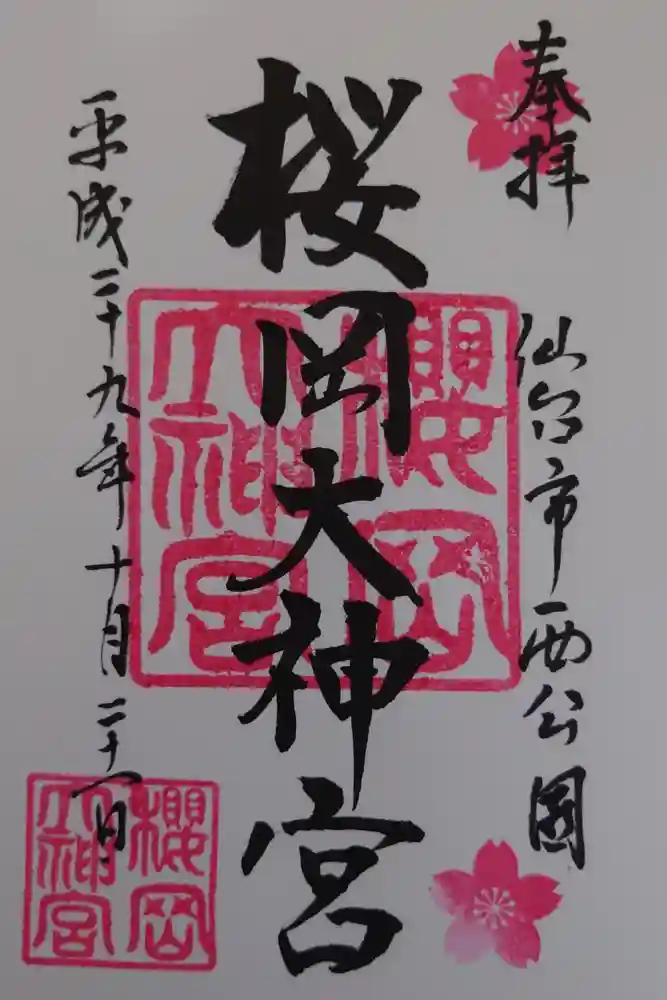 奉拝
仙台市西公園
桜岡大神宮
櫻岡
大神宮
平成二十九年十月二十一日
櫻岡
大神宮